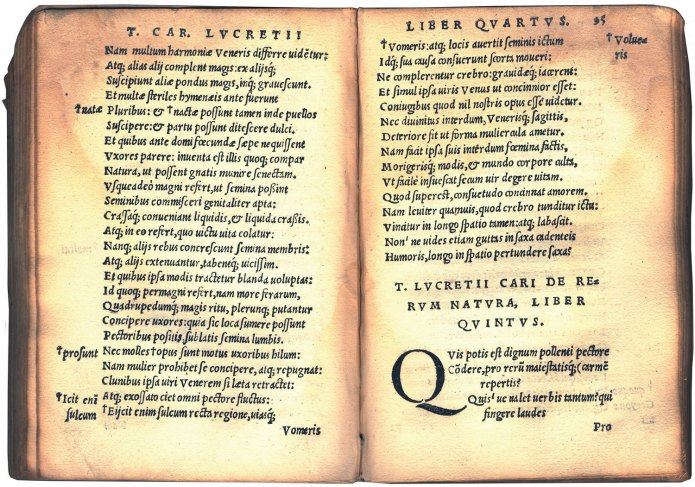 T. CAR. LVCRETII
Nam multum harmoniæ Veneris differre uidẽtur:
Atq; alias alij complent magis: ex alijsq;
Suscipiunt aliæ pondus magis, inq; grauescunt.
Et multæ steriles hymenæis ante fuerunt
†natæ Pluribus: & †nactæ possunt tamen inde puellos
Suscipere: & partu possunt ditescere dulci.
Et quibus ante domi fœcundæ sæpe nequissent
Vxores parere: inuenta est illis quoq; compar
Natura, ut possent gnatis munire senectam.
Vsqueadeò magni refert, ut semina possint
Seminibus commisceri genitaliter apta:
Crassaq; conueniant liquidis, & liquida crassis.
Atq; in eo refert, quo uictu uita colatur:
Nanq; alijs rebus concrescunt semina membris:
Atq; alijs extenuantur, tabentq; uicissim.
Et quibus ipsa modis tractetur blanda uoluptas:
Id quoq; permagni refert, nam more ferarum,
Quadrupedumq; magis ritu, plerunq; putantur
Concipere uxores: quia sic loca sumere possunt
Pectoribus positis, sublatis semina lumbis.
†prosunt Nec molles †opus sunt motus uxoribus hilum:
Nam mulier prohibet se concipere, atq; repugnat:
Clunibus ipsa uiri Venerem si læta retractet:
†Icit enĩ Atq; exossato ciet omni pectore fluctus:
sulcum †Eijcit enim sulcum recta regione, uiasq;
Vomeris
LIBER QVARTVS. 95
†Vomeris: atq; locis auertit seminis ictum †Volue-
Idq; sua causa consuerunt scorta moueri: ris
Ne complerentur crebro: grauidæq; iacerent:
Et simul ipsa uiris Venus ut concinnior esset:
Coniugibus quod nil nostris opus esse uidetur.
Nec diuinitus interdum, Venerisq; sagittis,
Deteriore fit ut forma muliercula ametur.
Nam facit ipsa suis interdum fœmina factis,
Morigerisq; modis, & mundo corpore culta,
Vt facilè insuescat secum uir degere uitam.
Quod superest, consuetudo concinnat amorem.
Nam leuiter quamuis, quod crebro tunditur ictu:
Vincitur in longo spatio tamen: atq; labascit.
Non' ne uides etiam guttas in saxa cadenteis
Humoris, longo in spatio pertundere saxa?
T. LVCRETII CARI DE RE-
RVM NATVRA, LIBER
QVINTVS.
QVis potis est dignum pollenti pectore
Cõdere, pro rerũ maiestatisq; (carmẽ
repertis?
Quis' ue ualet uerbis tantum? qui
fingere laudes
Pro